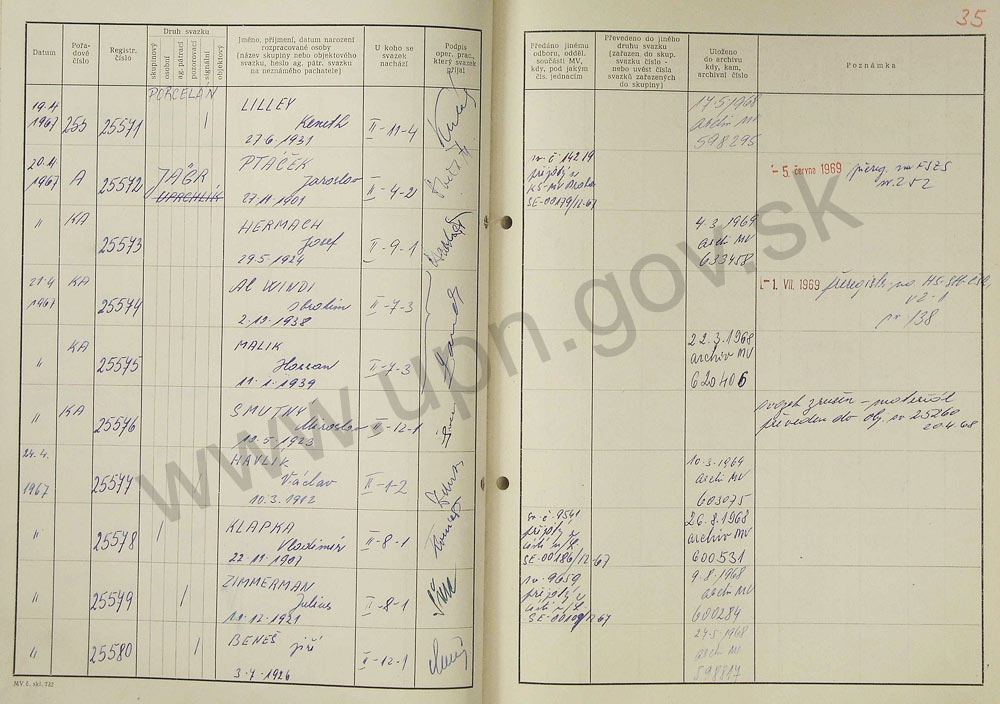 35
Datum
Pořa-
dové
číslo
Registr.
číslo
Druh svazku
skupinový
osobní
ag. pátrací
pozorovací
signální
objektový
Jméno, příjmení, datum narození
rozpracované osoby
(název skupiny nebo objektového
svazku, heslo ag. pátr. svazku
na neznámého pachatele)
U koho se
svazek
nachází
Podpis
oper. prac.,
který svazek
přijal
Předáno jinému
odboru, odděl.
součásti MV,
kdy, pod jakým
čís. jednacím
Převedeno do jiného
druhu svazku
(zařazen do skup.
svazku číslo -
nebo uvést čísla
svazků zařazených
do skupiny)
Uloženo
do archivu
kdy, kam,
archivní číslo
Poznámka
19.4
1967
255
25571
PORCELAN
LILLEY
Keneth
27.6.1931
II-11-4
17.5.1968
archiv MV
598295
20.4
1967
A
25572
JÄGR
UPRCHLÍK
PTÁČEK
Jaroslav
27.11.1901
II-4-2
KS-MV Praha
SE-00179/12-67
- 5. června 1969
"
KA
25573
HERMACH
Josef
29.5.1924
II-9-1
4.3.1969
archiv MV
633458
21.4
1967
KA
25574
AL WINDI
Ibrahim
2.12.1938
II-7-3
- 1. VII. 1969
138
"
KA
25575
MALIK
Hassan
11.1.1939
II-7-3
22.3.1968
archiv MV
620406
"
KA
25576
SMUTNÝ
Miroslav
10.5.1923
II-12-1
svazek zrušen - materiál
převeden do obj. sv 25260
20.4.68
24.4.
1967
25577
HAVLÍK
Václav
10.3.1912
II-1-2
10.3.1969
archiv MV
603075
"
25578
KLAPKA
Vladimír
22.11.1907
II-8-1
č 9541
SE-00186/12-67
26.8.1968
archiv MV
600531
"
25579
ZIMMERMAN
Julius
11.12.1921
II-8-1
9659
9.8.1968
archiv MV
600284
"
25580
BENEŠ
Jiří
3.7.1926
II-12-1
27.5.1968
archiv MV
598817
MV č. skl. 722
www.upn.gov.sk